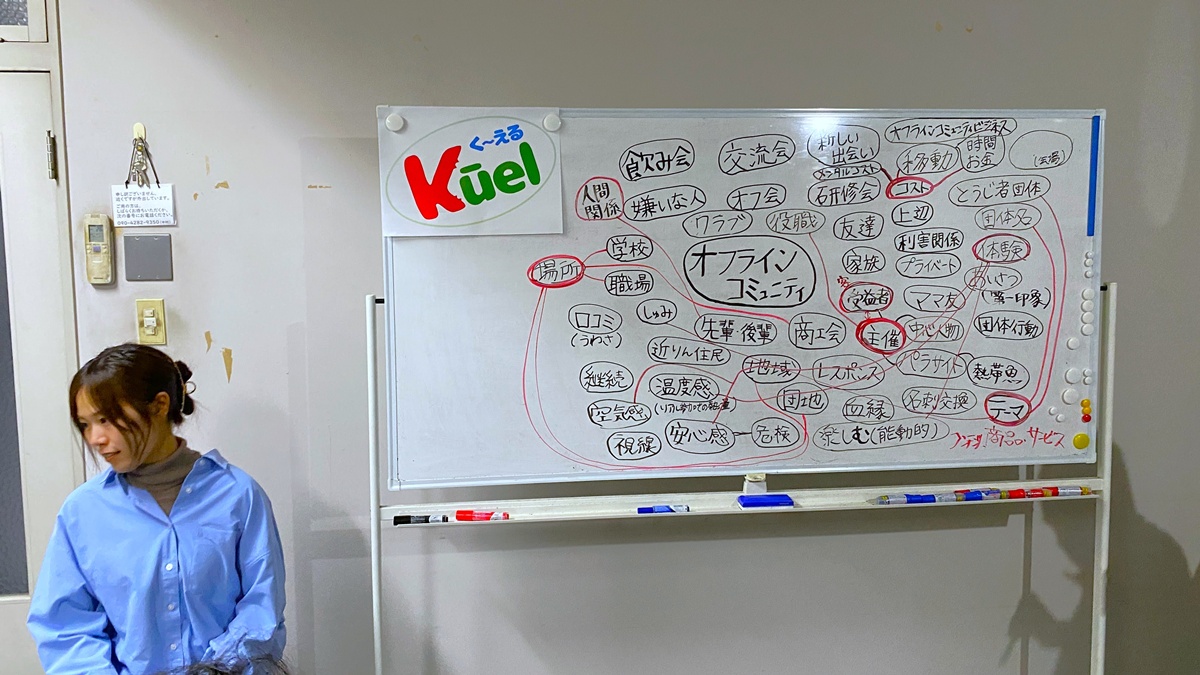 く〜える
Kūel
飲み会
交流会
新しい
出会い
メンタルコスト
オフラインコミュニティビジネス
移動
時間
お金
(会場)
人間
関係
嫌いな人
オフ会
研修会
コスト
とうじ者団体
クラブ
役職
友達
上辺
団体名
学校
オフライン
コミュニティ
利害関係
体験
場所
職場
家族
プライベート
あいさつ
(第一印象)
受益者
ママ友
口コミ
(うわさ)
しゅみ
先輩・後輩
商工会
主催
中心人物
団体行動
近りん住民
継続
温度感
地域
レスポンス
パラサイト
熱帯魚
空気感
団地
血縁
名刺交換
テーマ
視線
安心感
危検
楽しむ(能動的)
商品・サービス
申し訳ございません。
近くですが外出しています。
ご用の方は、
しばらくお待ちいただくか、
次の番号にお電話ください。